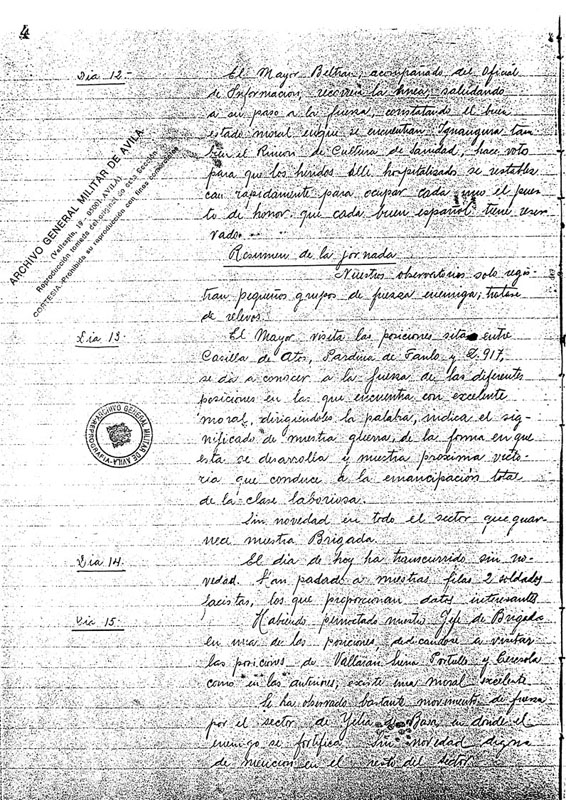 4
Dia 12 -
El Mayor Beltran, acompañado del Oficial
de Informacion, recorre la linea, saludando
a su paso a la fuerza, constatando el buen
estado moral enque se encuentran. Ynaugura tam
bien el Rincon de Cultura de Sanidad, hace voto
para que los heridos alli hospitalizados se restablez
can rapidamente para ocupar cada uno el pues
to de honor que cada buen español tiene reser
vado.
Resumen de la jornada
Nuestros observatorios solo regis-
tran pequeños grupos de fuerza enemiga; tratase
de relevos.
Dia 13.
El Mayor visita las posiciones sitas entre
Casilla de Atos, Sardina de Fanlo y 2.917,
se da a conocer a la fuerza de las diferentes
posiciones en las que encuentra con excelente
moral, dirigiendoles la palabra, indica el sig-
nificado de nuestra guerra, de la forma en que
esta se desarrolla y nuestra proxima victo-
ria que conduce a la emancipación total
de la clase laboriosa.
Sin novedad en todo el sector que guar-
nece nuestra Brigada.
Dia 14.
El dia de hoy ha transcurrido sin no-
vedad. Han pasado a nuestras filas 2 soldados
facistas, los que proporcionan datos interesantes.
Dia 15.
Habiendo pernoctado nuestro Jefe de Brigada
en una de las posiciones, dedicandose a visitar
las posiciones de Portullo y Ceresola
como en las anteriores, existe una moral excelente.
Se ha observado bastante movimiento de fuerza
por el sector de Yeba en donde el
enemigo se fortifica. Sin novedad digna
de mencion en el resto del sector.
ARCHIVO GENERAL MILITAR DE AVILA
(Vallespin, 19 - 05001 AVILA)
Reproducción tomada del original de este Servicio
CORTESIA. Prohibida su reproducción con fines comerciales
ARCHIVO GENERAL MILITAR DE AVILA - REPROGRAFIA